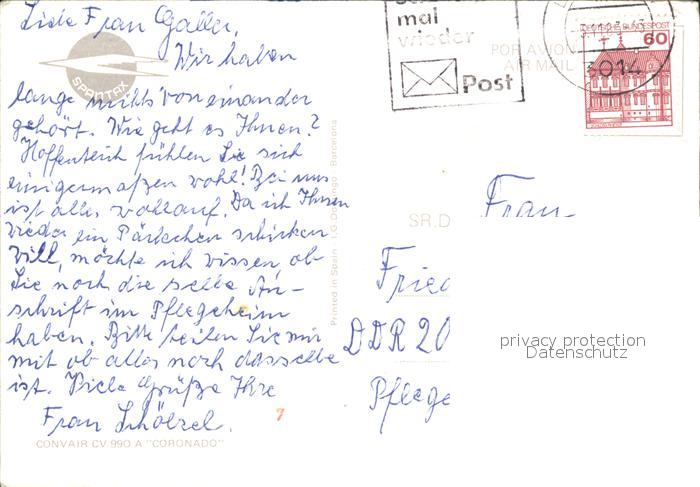 Liebe Frau Galler,
Wir haben
SPANTAX
lange nichts voneinander
gehört. Wie geht es Ihnen?
Hoffentlich fühlen Sie sich
einigermaßen wohl! Bei uns
ist alles wohlauf. Da ich Ihnen
wieder ein Päckchen schicken
will, möchte ich wissen ob
Sie noch die selbe An-
schrift im Pflegeheim
haben. Bitte teilen Sie mir
mit ob alles noch dasselbe
ist. Viele Grüße Ihre
Frau Schölzel.
7
CONVAIR CV 990 A "CORONADO"
Printed in Spain - I.G. Domingo - Barcelona
mal
wieder
Post
POR AVION
AIR MAIL
DEUTSCHE BUNDESPOST
60
3014
SR.D
Frau
Fried
DDR 20
Pflege
privacy protection
Datenschutz